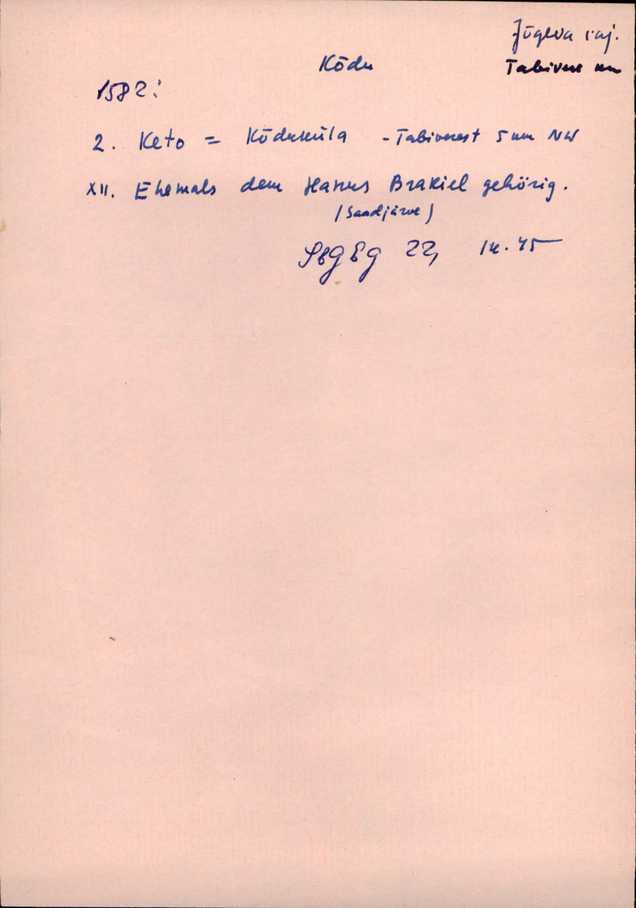 Jõgeva raj.
Kõdu
Tabivere km
1582:
2. Keto = Kõduküla - Tabiverest 5 km NW
XII. Ehemals dem Hannus Brakiel gehörig.
(Saadjärve)
SbGEG 22, lk. 45